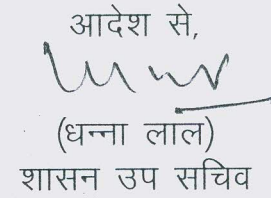 आदेश से,
(धन्ना लाल)
शासन उप सचिव